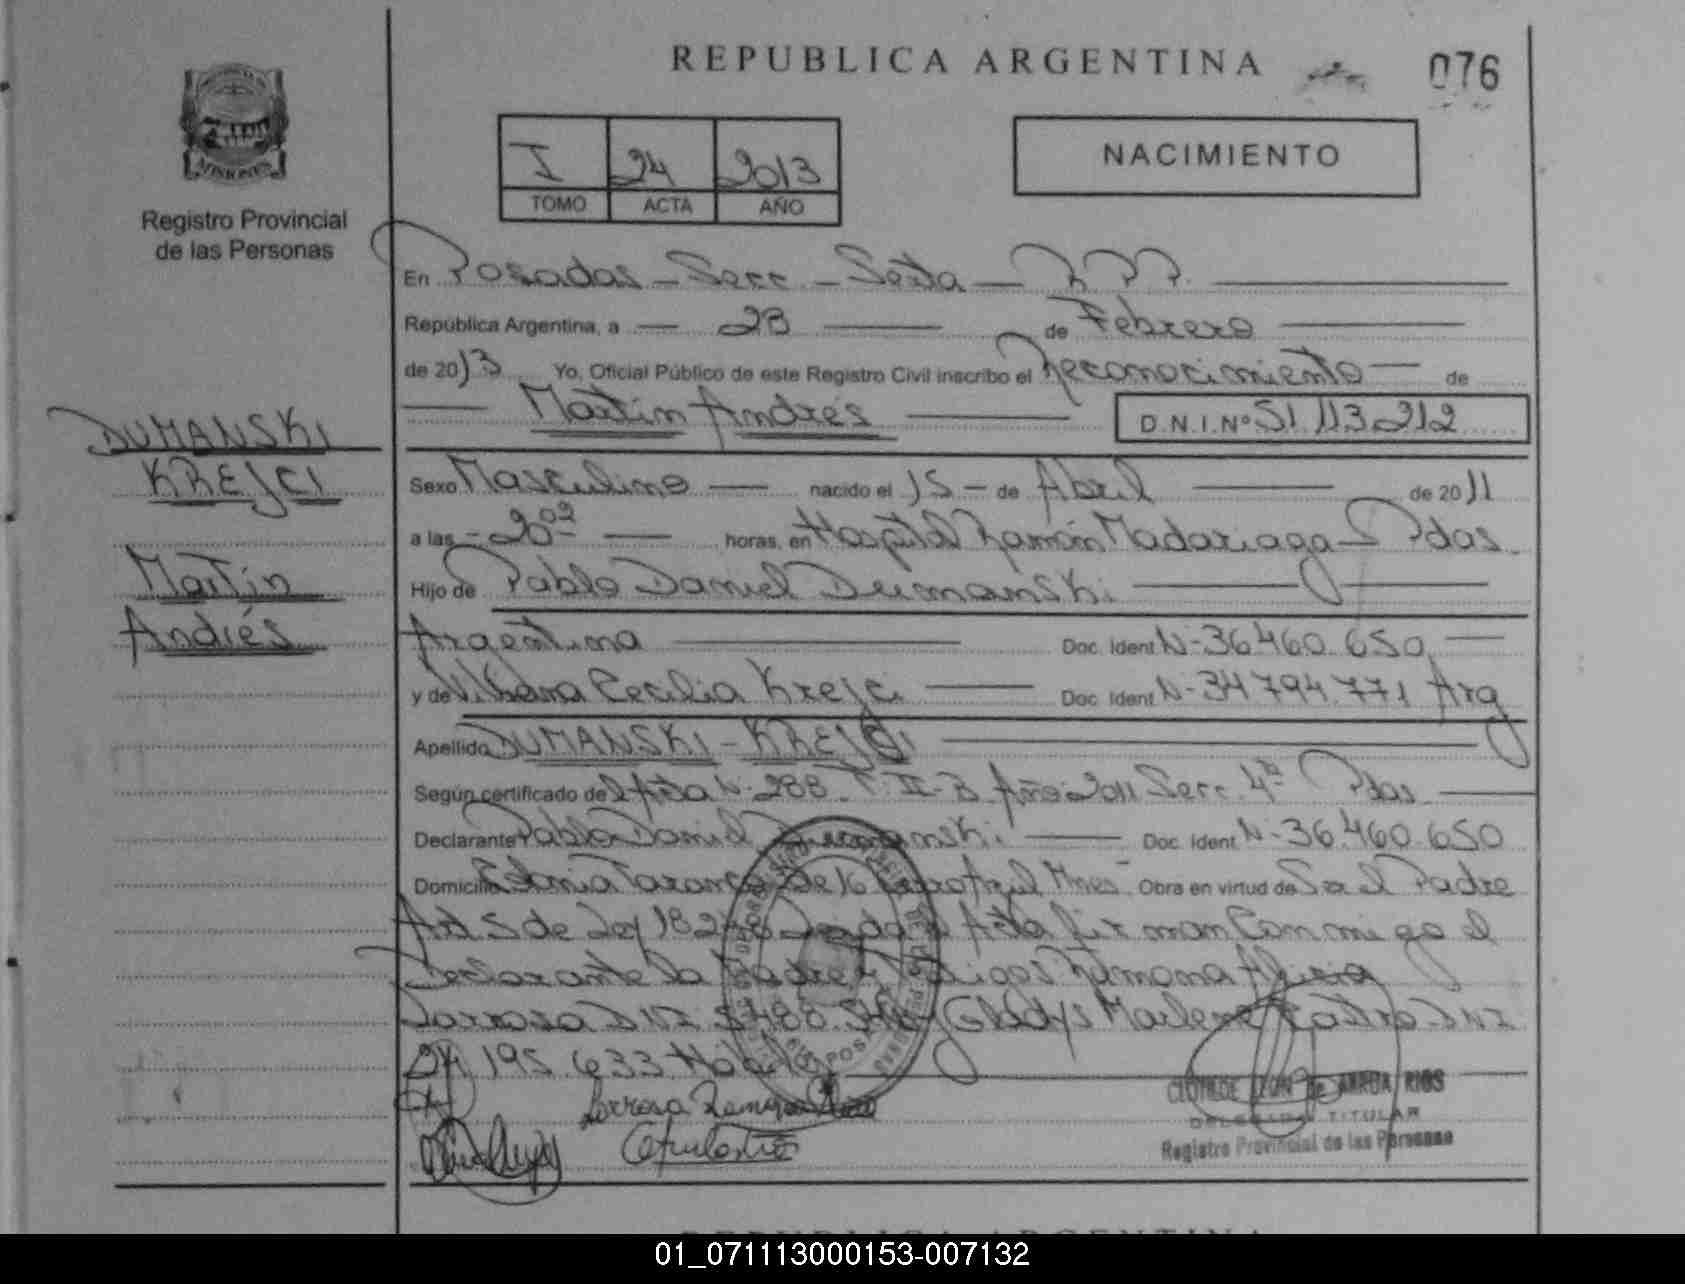 REPUBLICA ARGENTINA
076
MISIONES
Registro Provincial
de las Personas
I 24 2013
TOMO ACTA AÑO
NACIMIENTO
En Posadas - Secc - Sexta - R.P.P.
República Argentina, a 28 de Febrero
de 2013 Yo, Oficial Público de este Registro Civil inscribo el Reconocimiento de
Martín Andrés D.N.I.Nº 51.113.212
DUMANSKI
KREJCI
Martín
Andrés
Sexo Masculino nacido el 15 - de Abril de 2011
a las - 20 02 horas, en Hospital Ramón Madariaga - Pdas
Hijo de Pablo Daniel Dumanski
Argentina Doc. Ident N- 36.460.650
y de Cecilia Krejci Doc. Ident N- 34.794.771 Arg
Apellido DUMANSKI - KREJCI
Según certificado del Acta N- 288 T. II-B Año 2011 Secc. 4ª Pdas
Declarante Pablo Daniel Dumanski Doc. Ident N- 36.460.650
Domicilio de Obra en virtud de Ser el Padre
Art 5 de Ley Acta firman Conmigo el
Declarante la Madre y Ramona
DNI Gladys Marlene Castro DNI
24.195.633
DELEGADA TITULAR
Registro Provincial de las Personas
REPUBLICA ARGENTINA
01_071113000153-007132